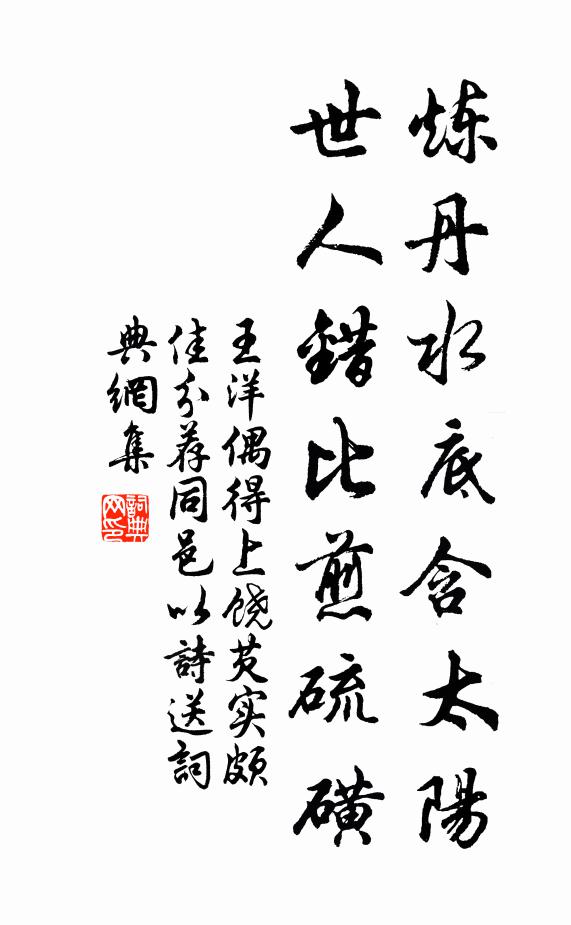 炼丹水底含太陽
世人錯比煎硫磺
王洋偶得上饶芡实颇
佳分荐同邑以詩送詞
典網集
詞典网印